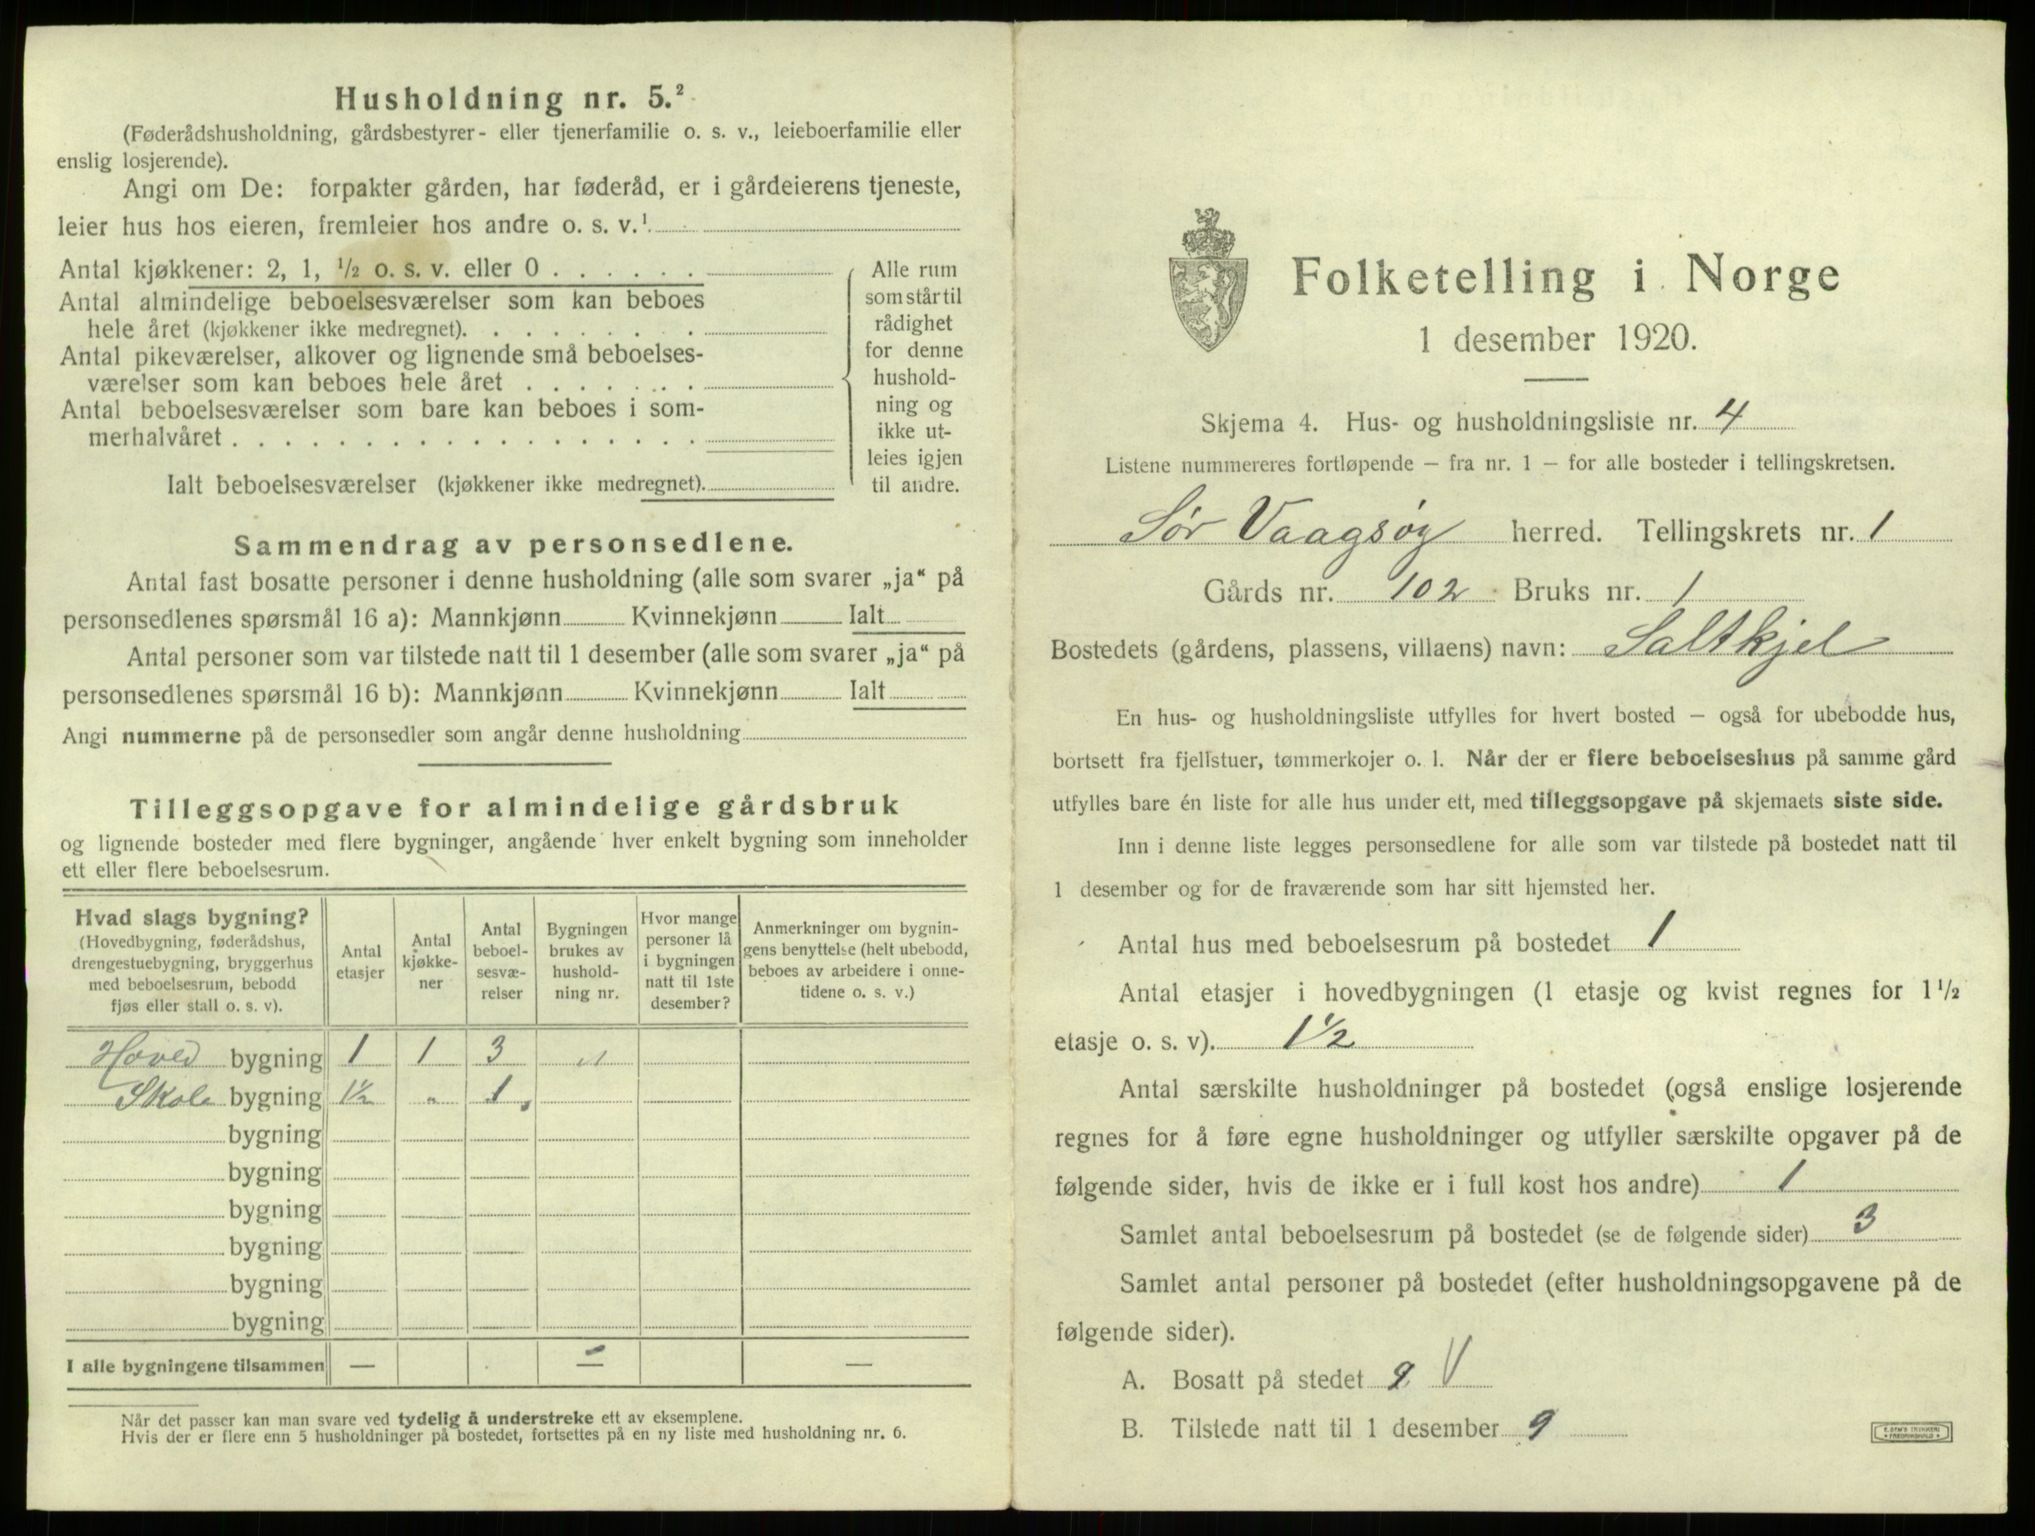 Husholdning nr. 5.²
(Føderådshusholdning, gårdsbestyrer- eller tjenerfamilie o. s. v., leieboerfamilie eller
enslig losjerende).
Angi om De: forpakter gården, har føderåd, er i gårdeierens tjeneste,
leier hus hos eieren, fremleier hos andre o. s. v.¹
Antal kjøkkener: 2, 1, ½ o. s. v. eller 0 . . . . . .
Antal almindelige beboelsesværelser som kan beboes
hele året (kjøkkener ikke medregnet). . . . . . . . .
Antal pikeværelser, alkover og lignende små beboelses-
værelser som kan beboes hele året . . . . . . . .
Antal beboelsesværelser som bare kan beboes i som-
merhalvåret . . . . . . . . . . . . . . . . . .
Ialt beboelsesværelser (kjøkkener ikke medregnet).
Alle rum
som står til
rådighet
for denne
hushold-
ning og
ikke ut-
leies igjen
til andre.
Sammendrag av personsedlene.
Antal fast bosatte personer i denne husholdning (alle som svarer „ja“ på
personsedlenes spørsmål 16 a): Mannkjønn Kvinnekjønn Ialt
Antal personer som var tilstede natt til 1 desember (alle som svarer „ja“ på
personsedlenes spørsmål 16 b): Mannkjønn Kvinnekjønn Ialt
Angi nummerne på de personsedler som angår denne husholdning
Tilleggsopgave for almindelige gårdsbruk
og lignende bosteder med flere bygninger, angående hver enkelt bygning som inneholder
ett eller flere beboelsesrum.
Hvad slags bygning?
(Hovedbygning, føderådshus,
drengestuebygning, bryggerhus
med beboelsesrum, bebodd
fjøs eller stall o. s. v).
Antal
etasjer
Antal
kjøkke-
ner
Antal
beboel-
sesvæ-
relser
Bygningen
brukes av
hushold-
ning nr.
Hvor mange
personer lå
i bygningen
natt til 1ste
desember?
Anmerkninger om bygnin-
gens benyttelse (helt ubebodd,
beboes av arbeidere i onne-
tidene o. s. v.)
Hoved bygning 1 1 3 „
Skole bygning 1½ „ 1
bygning
bygning
bygning
bygning
bygning
bygning
I alle bygningene tilsammen — — —
Når det passer kan man svare ved tydelig å understreke ett av eksemplene.
Hvis der er flere enn 5 husholdninger på bostedet, fortsettes på en ny liste med husholdning nr. 6.
Folketelling i Norge
1 desember 1920.
Skjema 4. Hus- og husholdningsliste nr. 4
Listene nummereres fortløpende – fra nr. 1 – for alle bosteder i tellingskretsen.
Sør Vaagsøy herred. Tellingskrets nr. 1
Gårds nr. 102 Bruks nr. 1
Bostedets (gårdens, plassens, villaens) navn: Saltkjel
En hus- og husholdningsliste utfylles for hvert bosted – også for ubebodde hus,
bortsett fra fjellstuer, tømmerkojer o. l. Når der er flere beboelseshus på samme gård
utfylles bare én liste for alle hus under ett, med tilleggsopgave på skjemaets siste side.
Inn i denne liste legges personsedlene for alle som var tilstede på bostedet natt til
1 desember og for de fraværende som har sitt hjemsted her.
Antal hus med beboelsesrum på bostedet 1
Antal etasjer i hovedbygningen (1 etasje og kvist regnes for 1½
etasje o. s. v). 1½
Antal særskilte husholdninger på bostedet (også enslige losjerende
regnes for å føre egne husholdninger og utfyller særskilte opgaver på de
følgende sider, hvis de ikke er i full kost hos andre) 1
Samlet antal beboelsesrum på bostedet (se de følgende sider) 3
Samlet antal personer på bostedet (efter husholdningsopgavene på de
følgende sider).
A. Bosatt på stedet 9 V
B. Tilstede natt til 1 desember 9